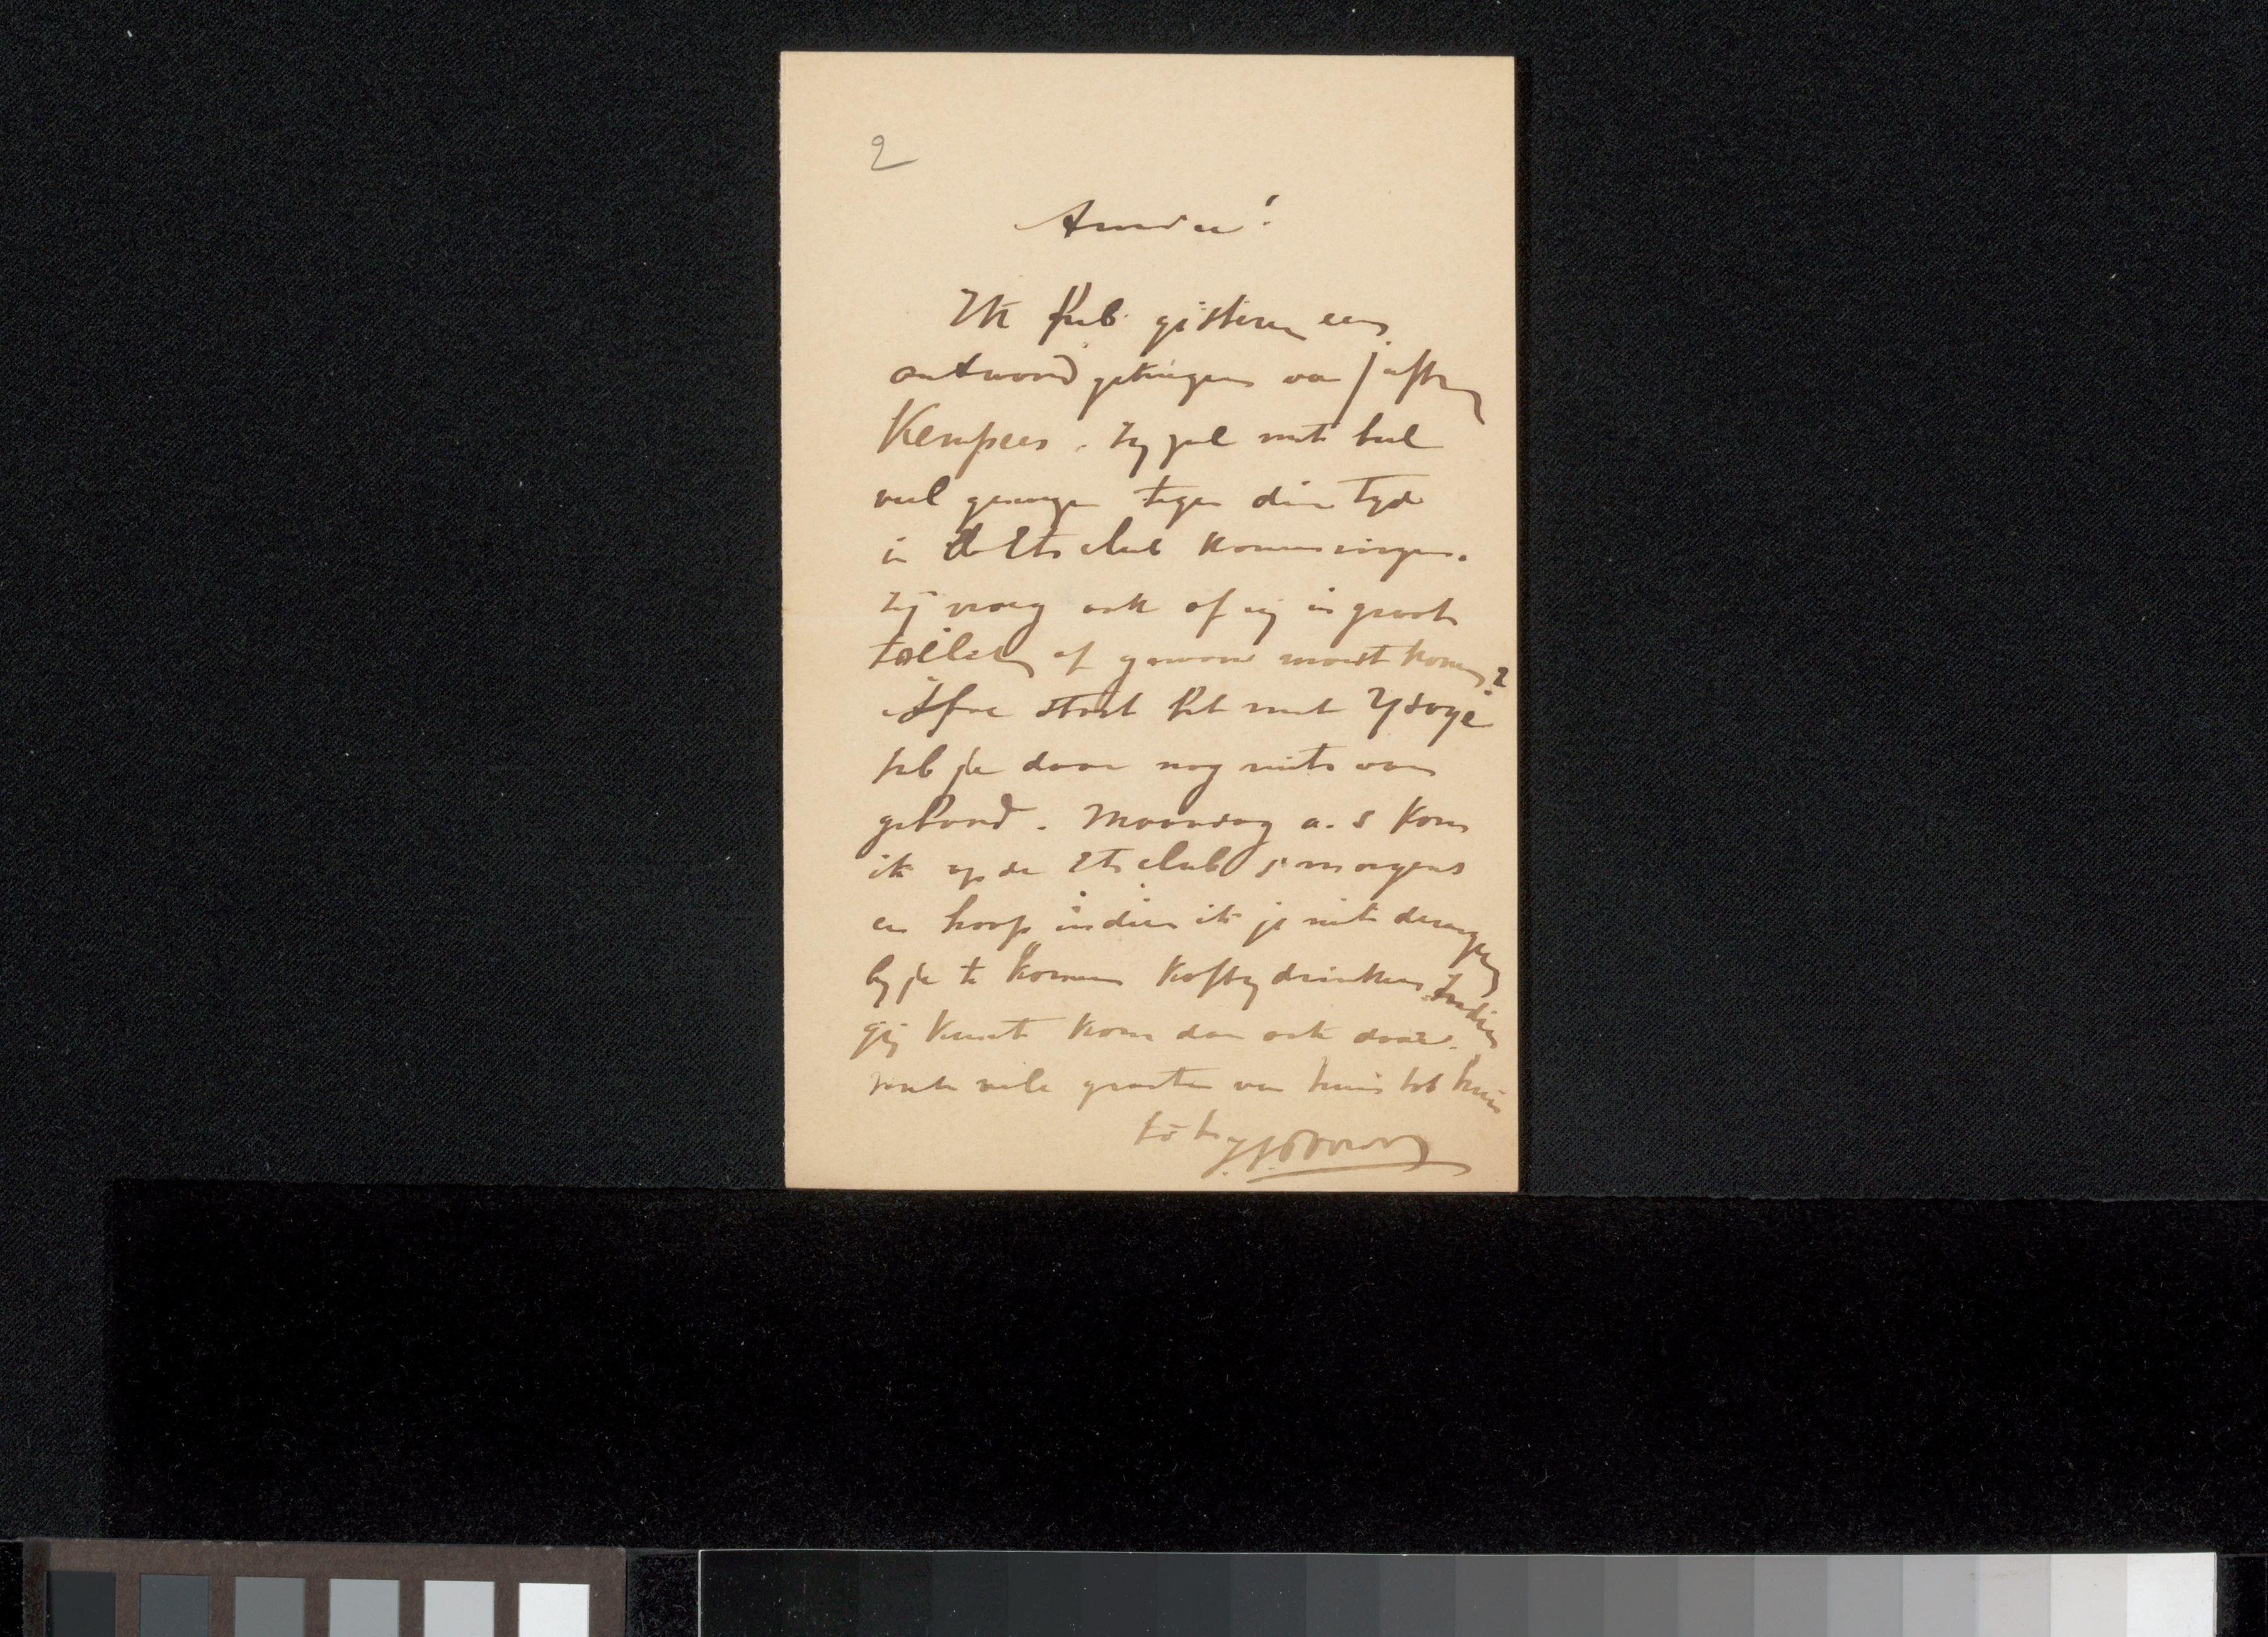 2
Amice!
Ik heb gisteren een
antwoord gekregen van Juffr
Kempees. Zy zal met heel
veel genoegen tegen dien tyd
in de Etsclub komen zingen.
Zij vroeg ook of zij in groot
toilet of gewoon moest komen?
Hoe staat het met Ysoye
heb je daar nog niets van
gehoord. Maandag a.s kom
ik op de Etsclub smorgens
en hoop indien ik je niet derangeer
by je te komen Koffy drinken Indien
gij kunt kom dan ook daar.
met vele groeten van huis tot huis
tot